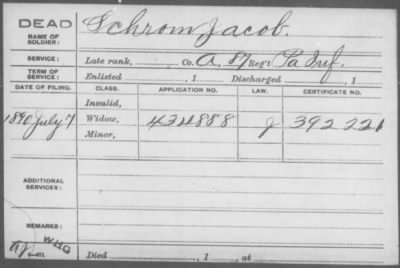 DEAD
NAME OF SOLDIER: Schrom Jacob.
SERVICE: Late rank, Co. A, 87 Reg't Pa Inf.
TERM OF SERVICE: Enlisted , 1 Discharged , 1
DATE OF FILING. CLASS. APPLICATION NO. LAW. CERTIFICATE NO.
Invalid,
1890 July 7 Widow, 434888 g 392221
Minor,
ADDITIONAL SERVICES:
REMARKS:
WHG
Died , 1 , at